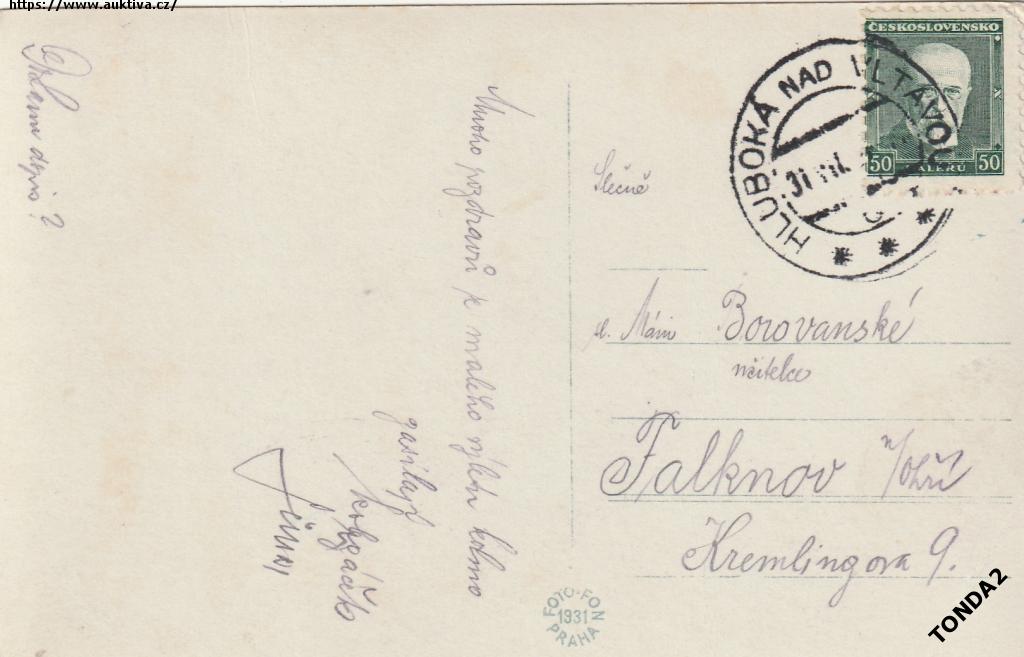 https://www.auktiva.cz/
dopis?
Mnoho pozdravů z malého výletu kolmo
zasílají
ČESKOSLOVENSKO
50 HALÉŘŮ 50
HLUBOKÁ NAD VLTAVOU
31.VII.
Slečně
sl. Máni Borovanské
učitelce
Falknov n/Ohří
Kremlingova 9.
FOTO-FON
1931
PRAHA
TONDA2